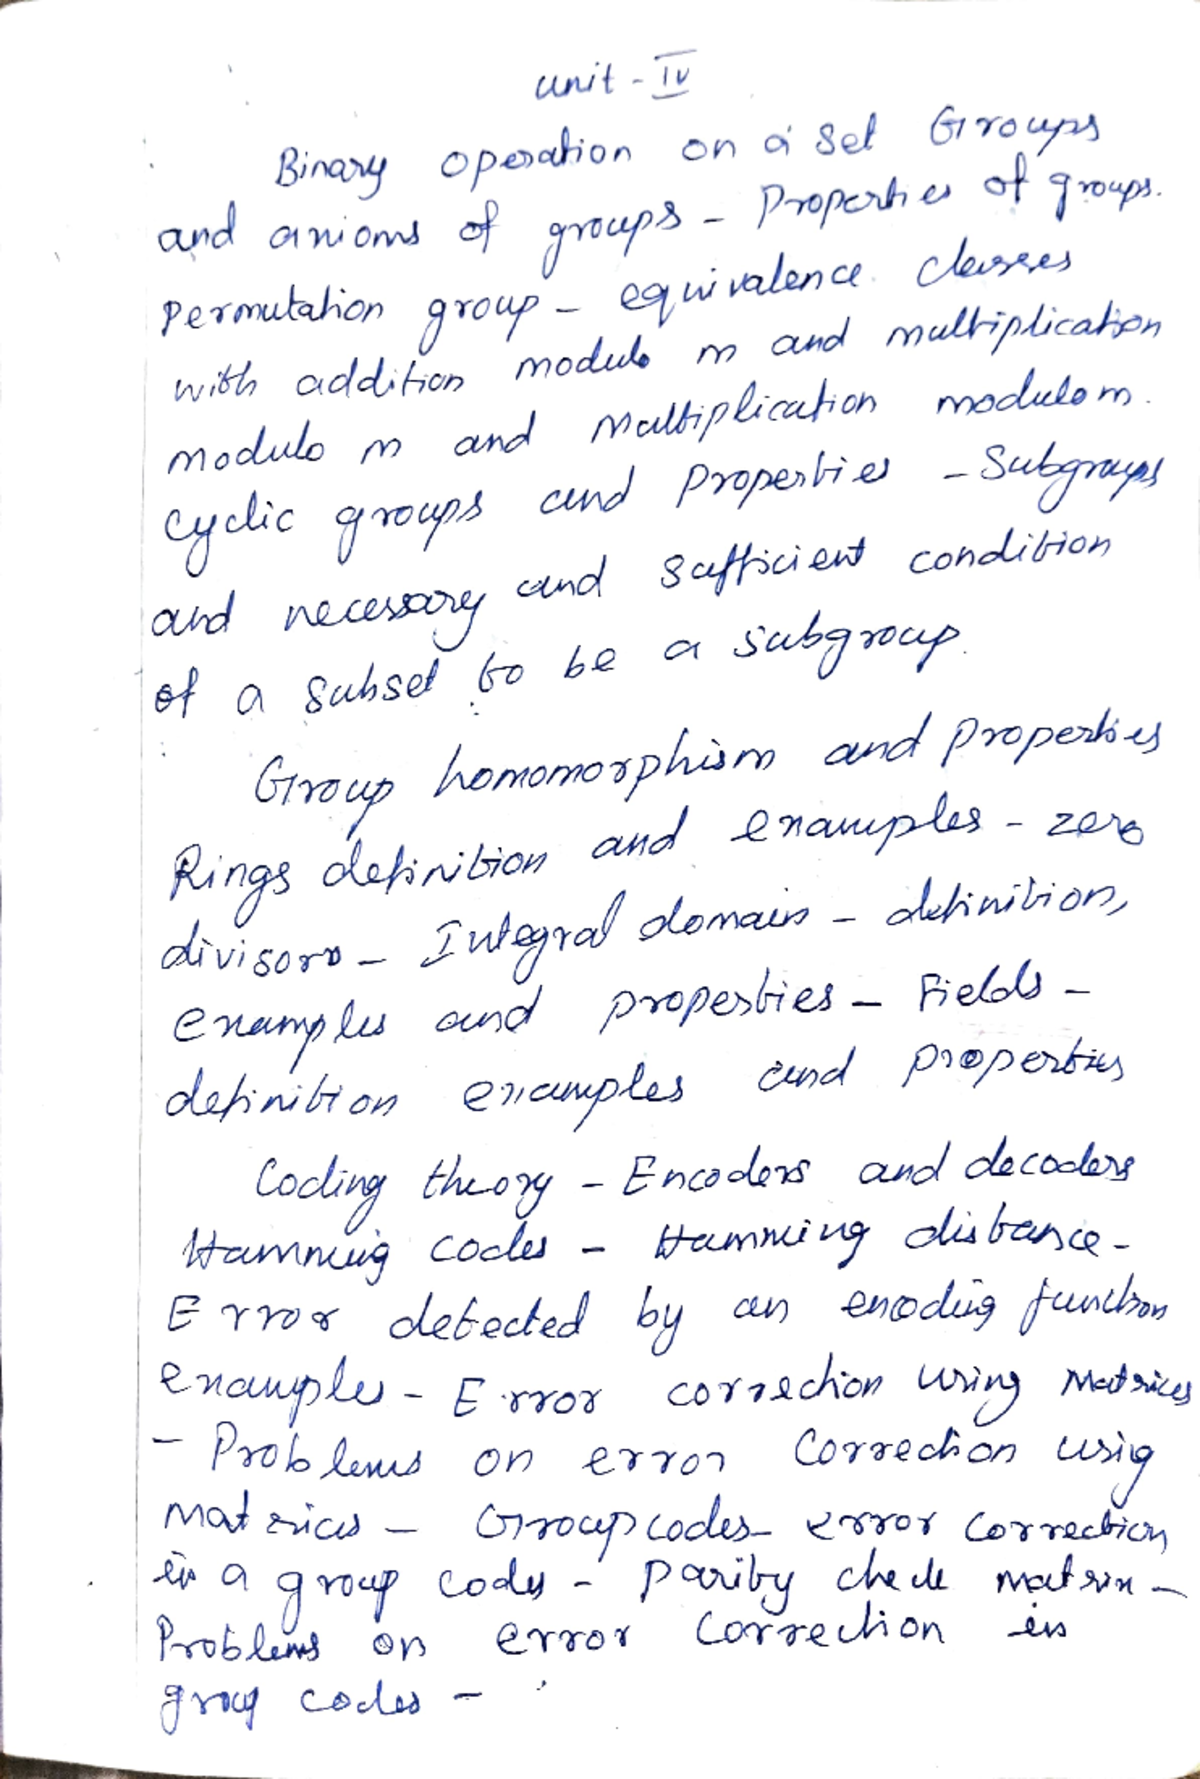 unit - IV
Binary operation on a set Groups
and axioms of groups - Properties of groups.
Permutation group - equivalence classes
with addition modulo m and multiplication
modulo m and Multiplication modulo m.
Cyclic groups and Properties - Subgroups
and necessary and sufficient condition
of a subset to be a subgroup.
Group homomorphism and properties
Rings definition and examples - zero
divisors - Integral domain - definition,
examples and properties - Fields -
definition examples and properties
Coding theory - Encoders and decoders
Hamming codes - Hamming distance -
Error detected by an encoding function
examples - Error correction using Matrices
- Problems on error Correction usig
matrices - Group codes - error correction
in a group codes - Parity check matrix -
Problems on error Correction in
group codes -